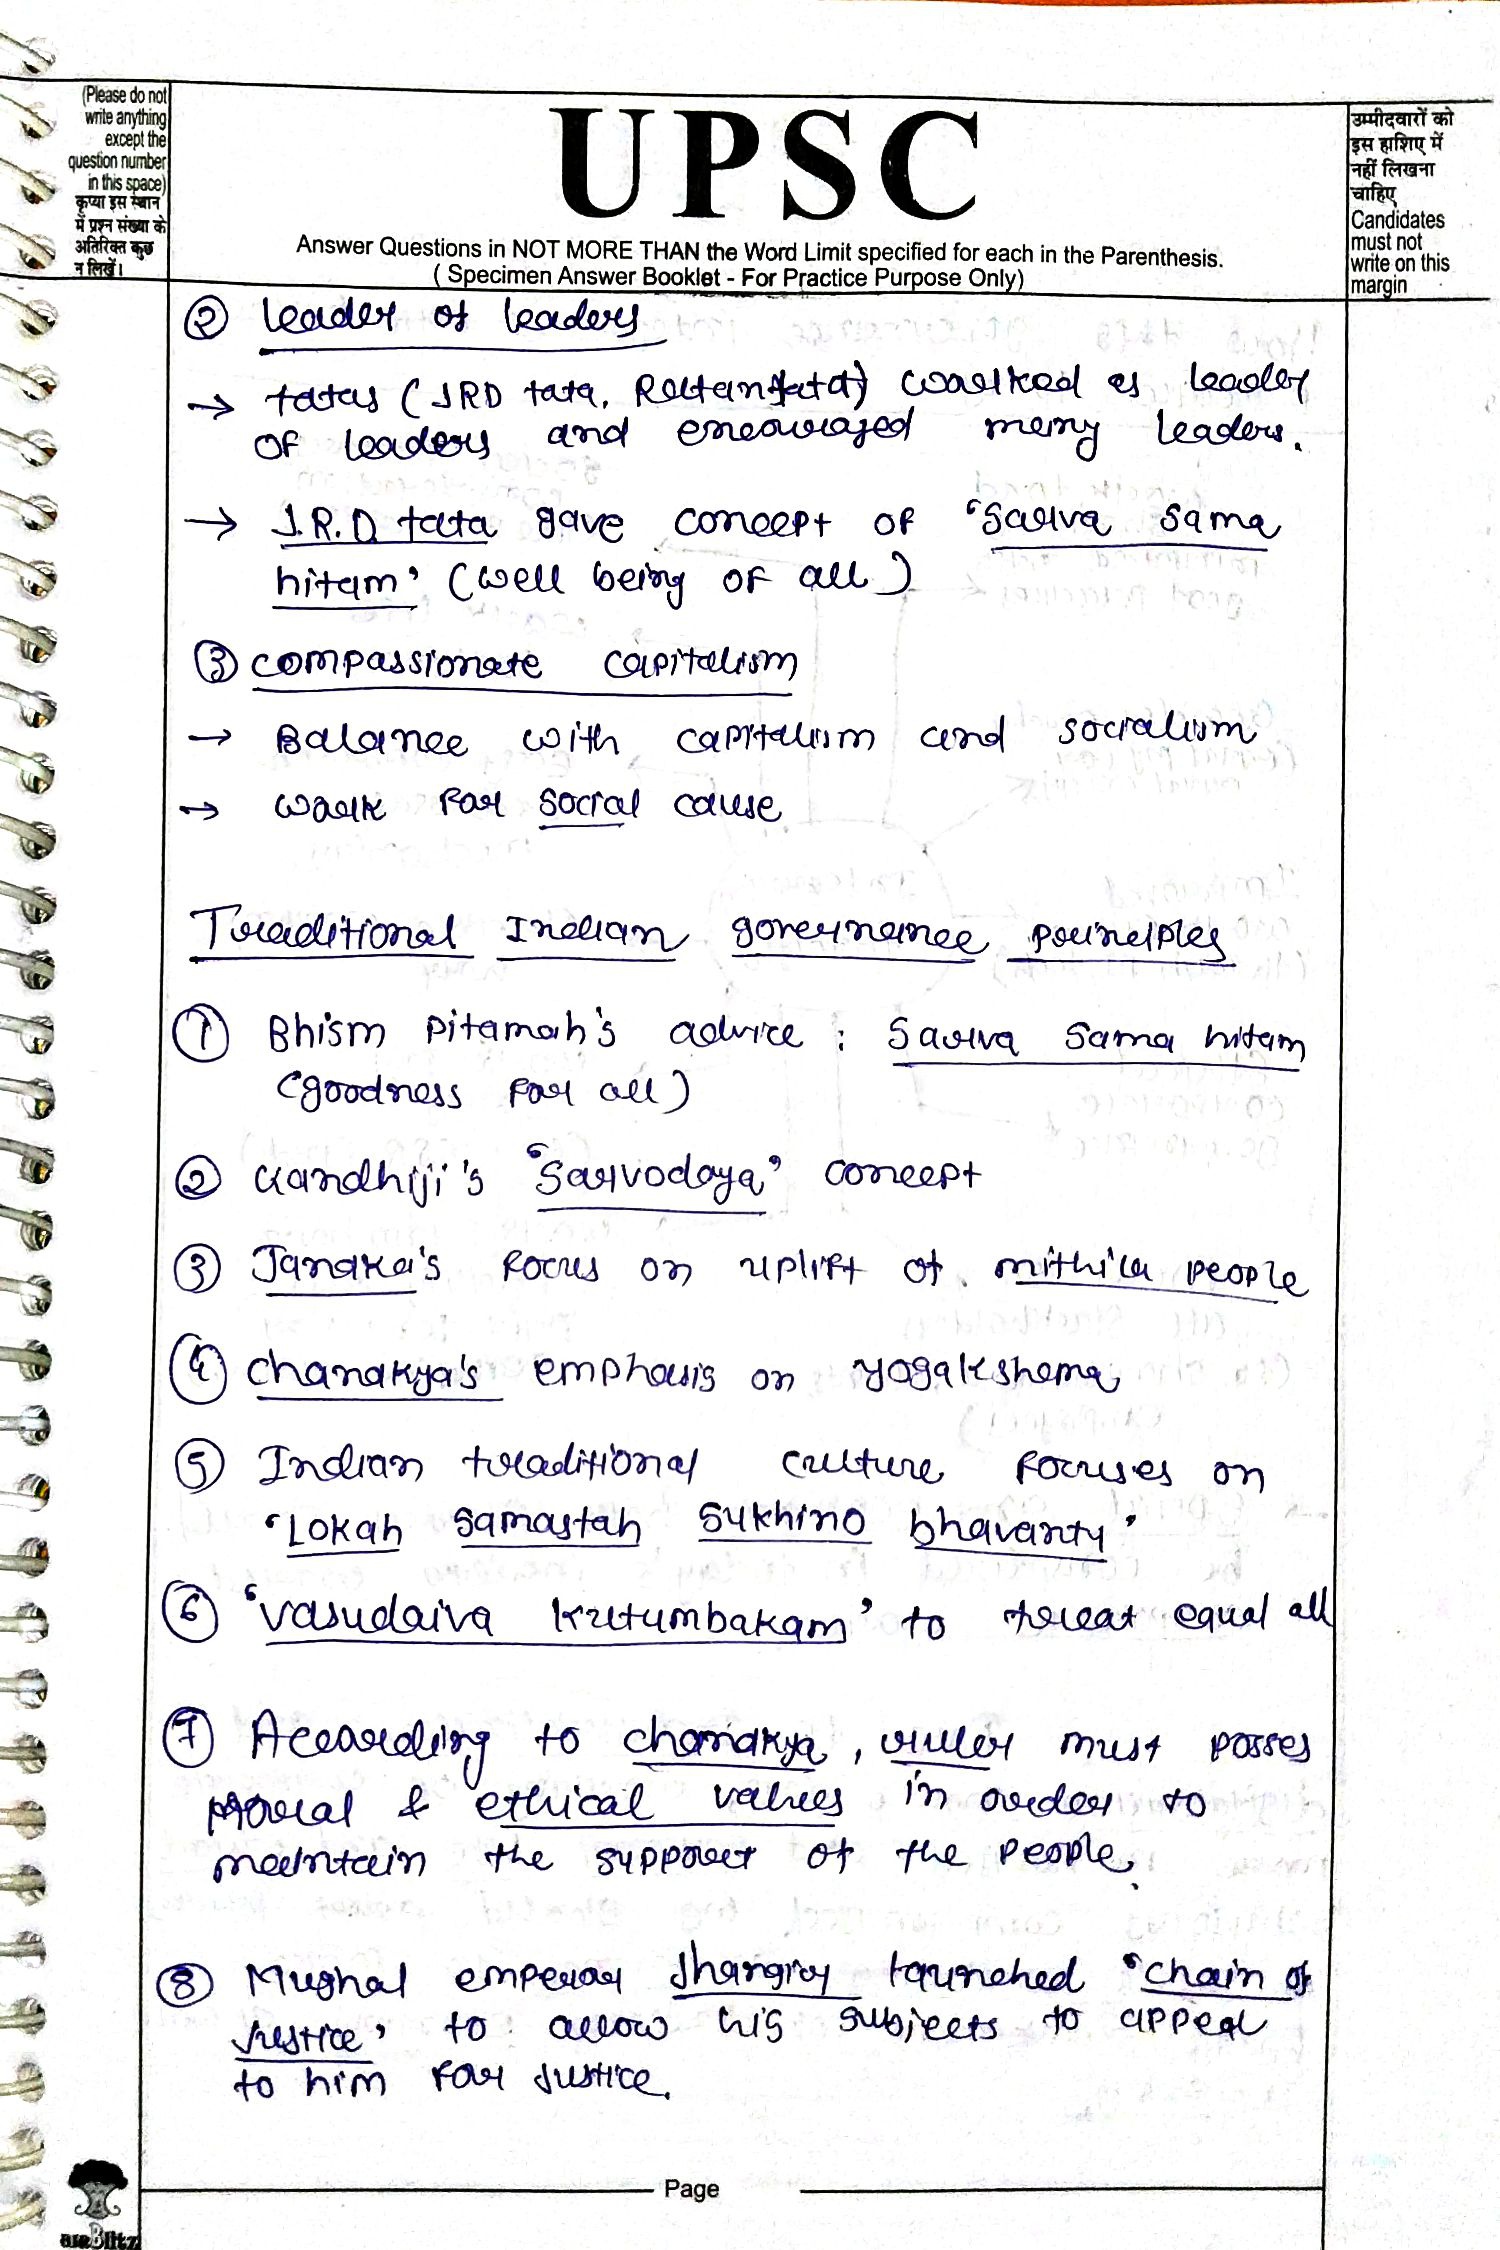 (Please do not
write anything
except the
question number
in this space)
कृप्या इस स्थान
में प्रश्न संख्या के
अतिरिक्त कुछ
न लिखें।
UPSC
Answer Questions in NOT MORE THAN the Word Limit specified for each in the Parenthesis.
( Specimen Answer Booklet - For Practice Purpose Only)
उम्मीदवारों को
इस हाशिए में
नहीं लिखना
चाहिए
Candidates
must not
write on this
margin
② Leader of Leaders
→ tatas (JRD tata, Ratan tata) worked as leader
of leaders and encouraged many leaders.
→ J.R.D tata gave concept of 'Sarva Sama
hitam' (well being of all)
③ compassionate capitalism
→ Balance with capitalism and socialism
→ work for social cause
Traditional Indian governance principles
① Bhism Pitamah's advice : Sarva Sama hitam
(goodness for all)
② Gandhiji's 'Sarvodaya' concept
③ Janaka's focus on uplift of mithila people
④ Chanakya's emphasis on yogakshema
⑤ Indian traditional culture focuses on
'Lokah samastah sukhino bhavantu'
⑥ 'Vasudaiva kutumbakam' to treat equal all
⑦ According to chanakya, ruler must posses
moral & ethical values in order to
maintain the support of the people.
⑧ Mughal emperor Jhangir launched 'chain of
Justice' to allow his subjects to appeal
to him for justice.
Page